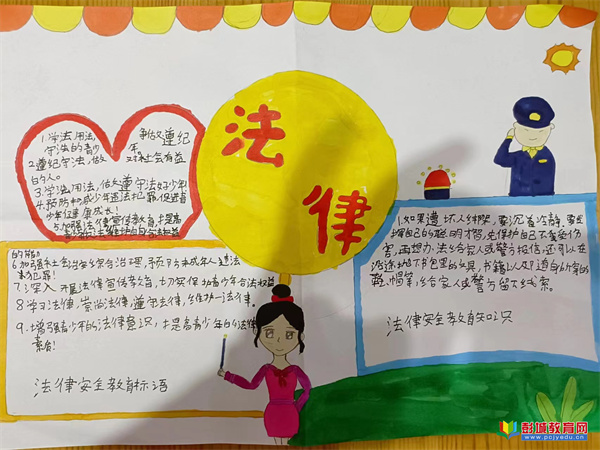 法律
1.学法用法, 争做遵纪
守法的青少年。
2.遵纪守法,做 对社会有益
的人。
3.学法用法,做遵守法好少年!
4.预防和减少年违法犯罪,促进青
少年健康成长!
5.加强法律宣传教育,提高
的能
6.加强社会治安综合治理,预防未成年人违法
犯罪!
7.深入开展法律宣传教育,切实保护青少年合法权益
8.学习法律,崇尚法律,遵守法律,维护法律。
9.增强青少年的法律意识,提高青少年的法律
素质!
法律安全教育标语
1.如果遭坏人绑架,要沉着冷静,要
握自己的聪明才智,先保护自己不受伤
害,再想办法给家人或警方报信,还可以在
沿途扔下书包里的文具,书籍以及随身的
帽等,给家人或警方留下线索。
法律安全教育知识
彭城教育网
www.pcjyedu.cn